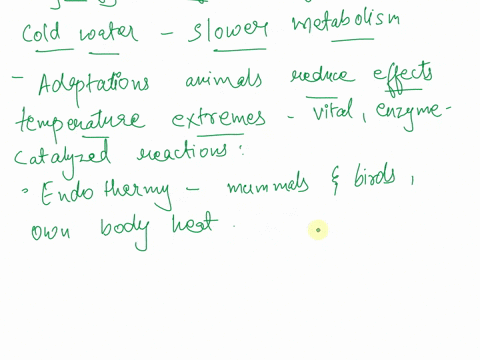 Cold water - slower metabolism
- Adaptations animals reduce effects
temperature extremes - vital, enzyme-
catalyzed reactions:
• Endothermy - mammals & birds,
own body heat.